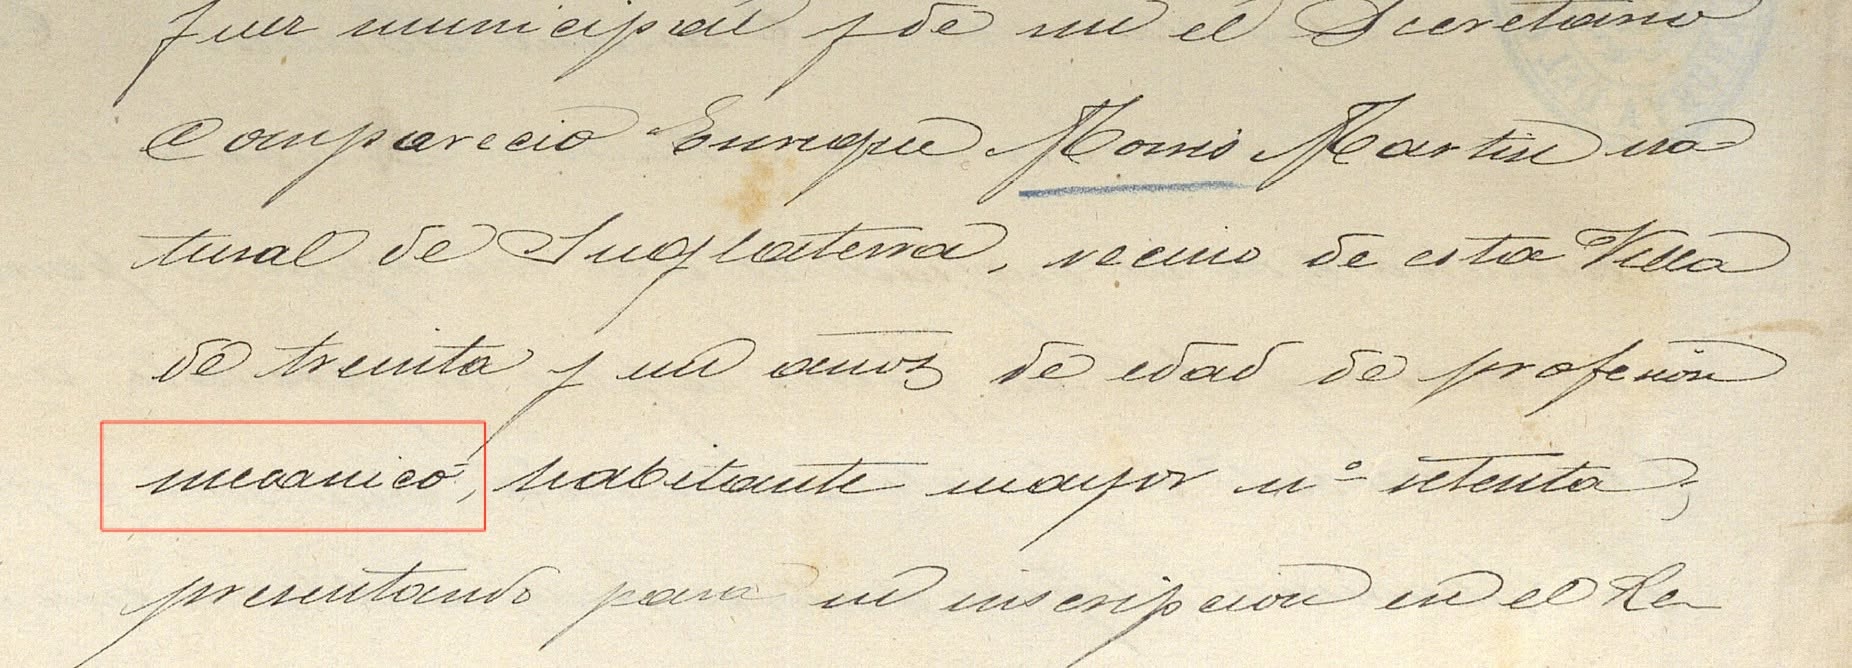 Juez municipal y de mi el Secretario
Compareció Enrique Morris Martin na-
tural de Inglaterra, vecino de esta Villa
de treinta y un años de edad de profesión
mecanico, habitante mayor nº setenta,
presentando para su inscripcion en el Re-